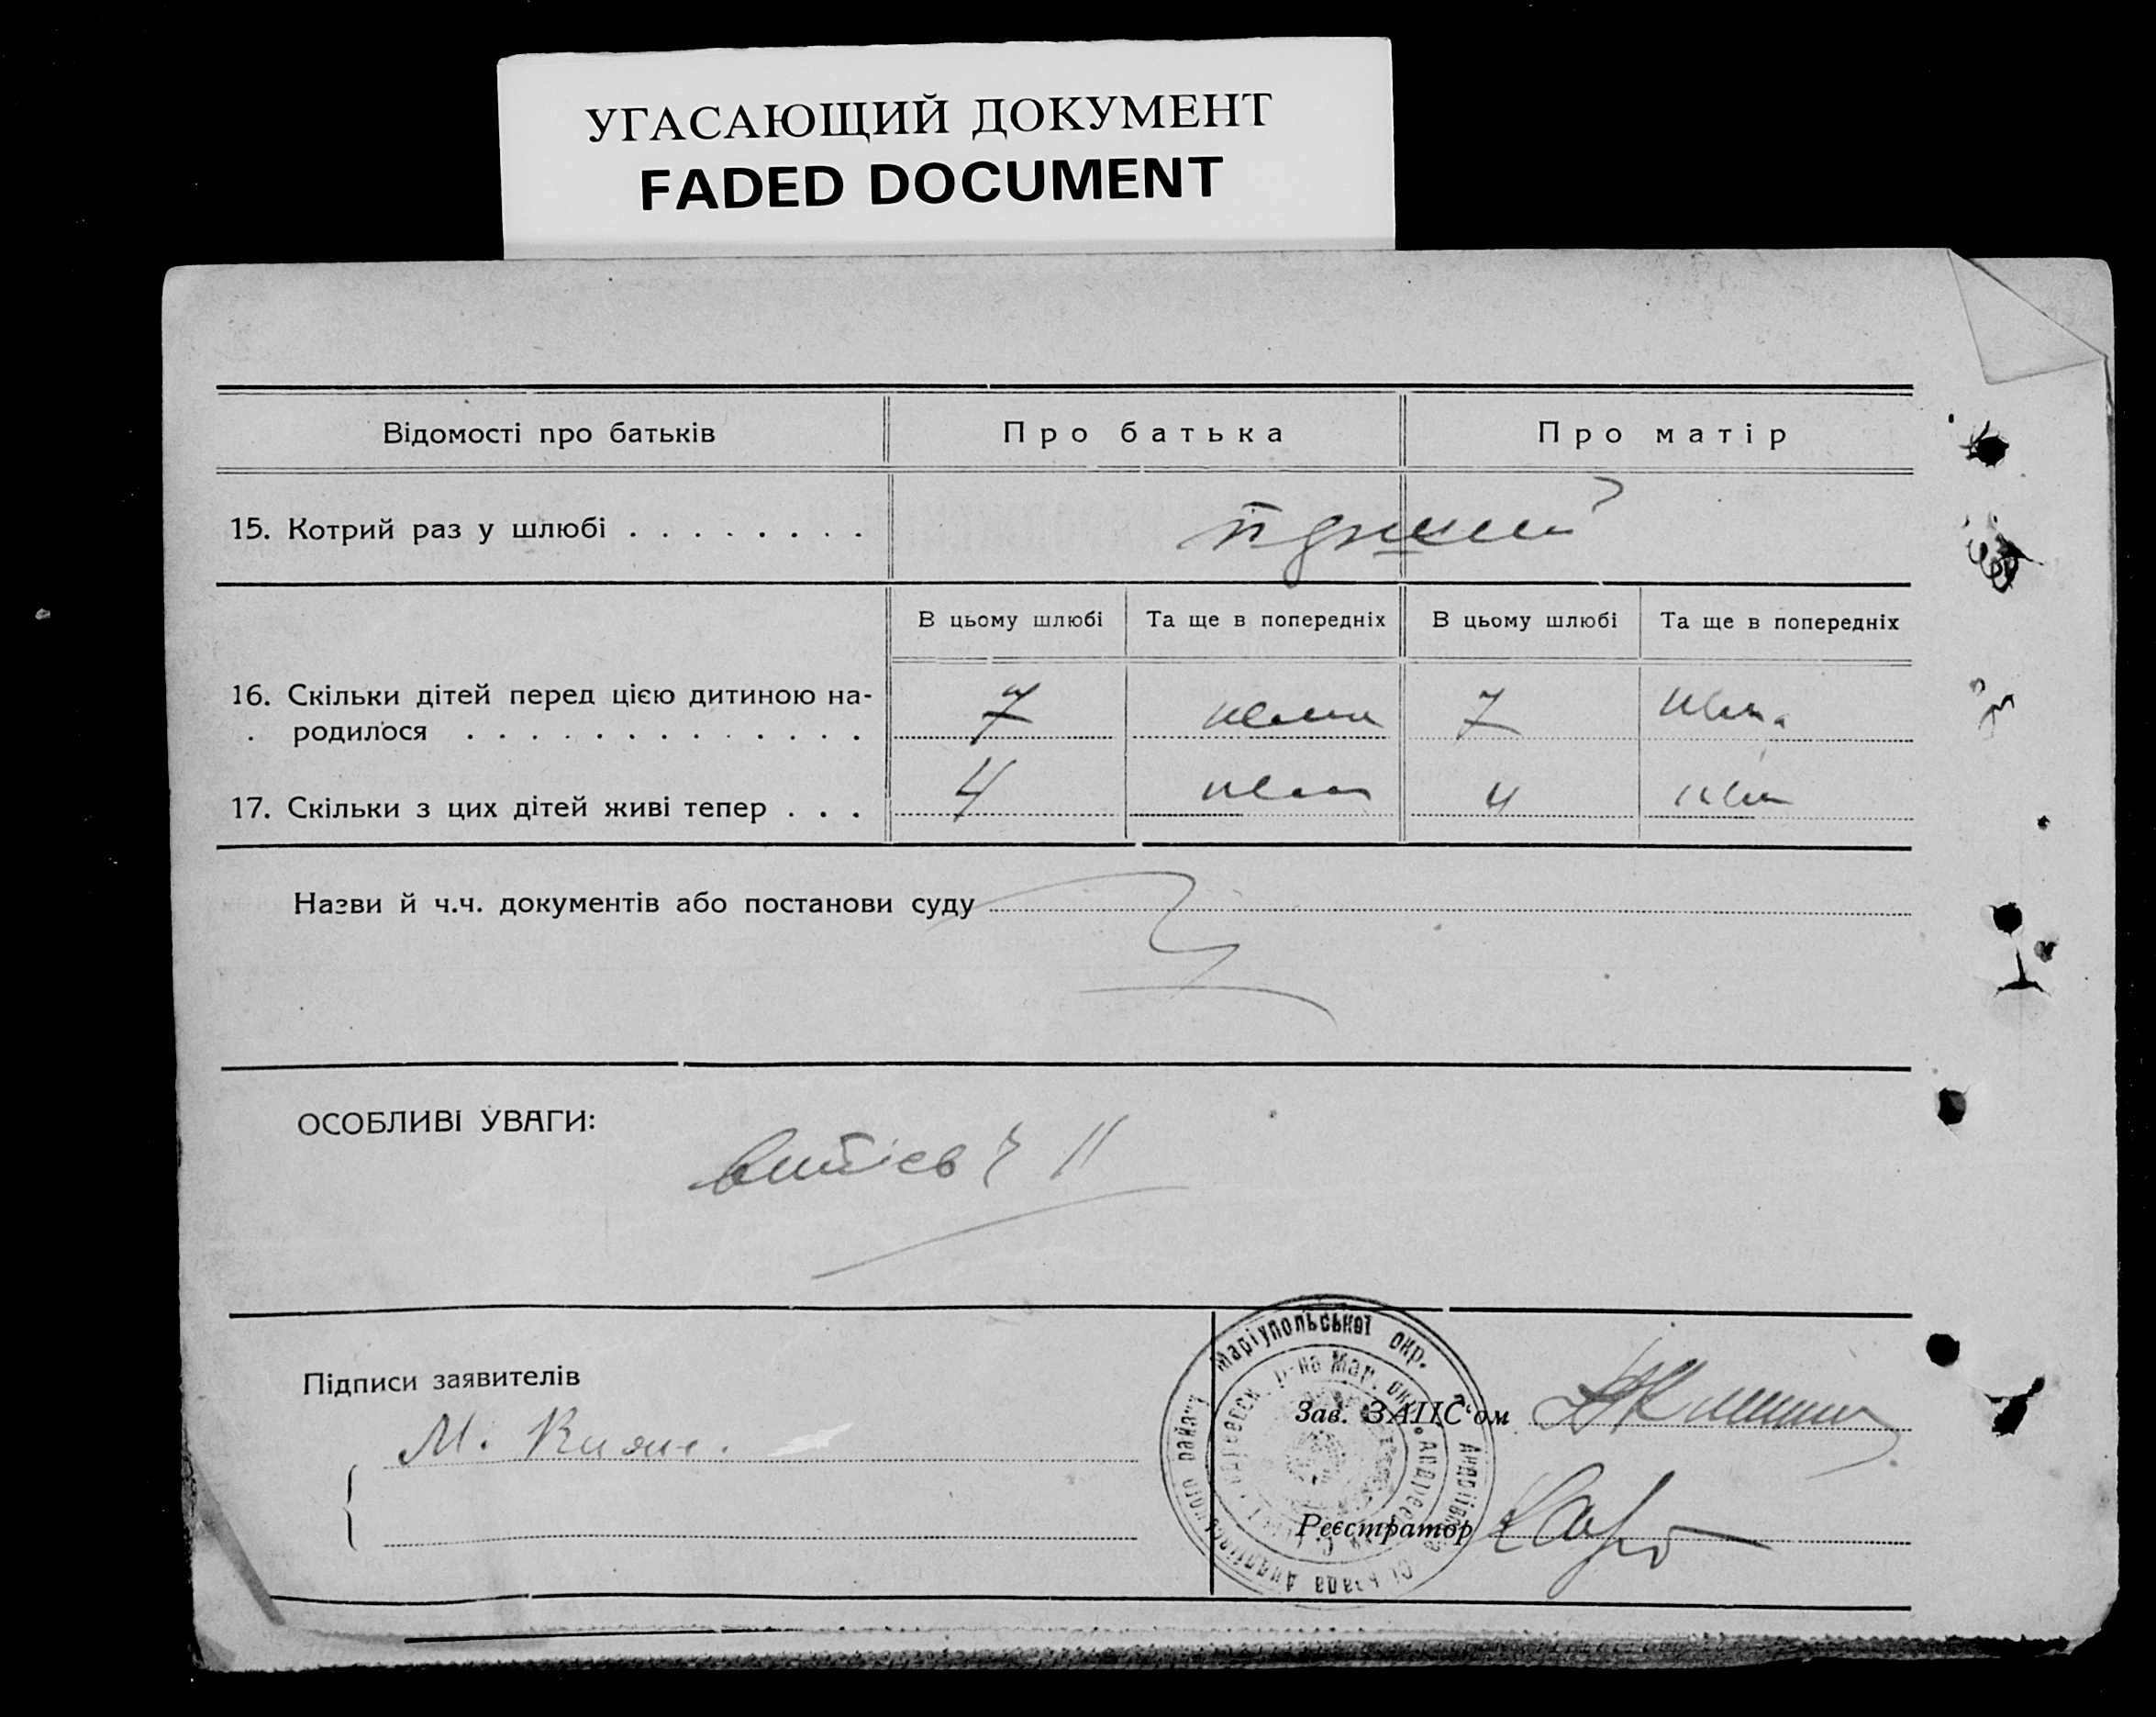 УГАСАЮЩИЙ ДОКУМЕНТ
FADED DOCUMENT
Відомості про батьків
Про батька
Про матір
15. Котрий раз у шлюбі . . . . . . . .
В цьому шлюбі
Та ще в попередніх
В цьому шлюбі
Та ще в попередніх
16. Скільки дітей перед цією дитиною на-
родилося . . . . . . . . . . . . .
7
нема
7
нема
17. Скільки з цих дітей живі тепер . . .
4
нема
4
нема
Назви й ч.ч. документів або постанови суду
ОСОБЛИВІ УВАГИ:
Підписи заявителів
М.
Маріупольської окр.
Зав. ЗАПС'ом
Реєстратор